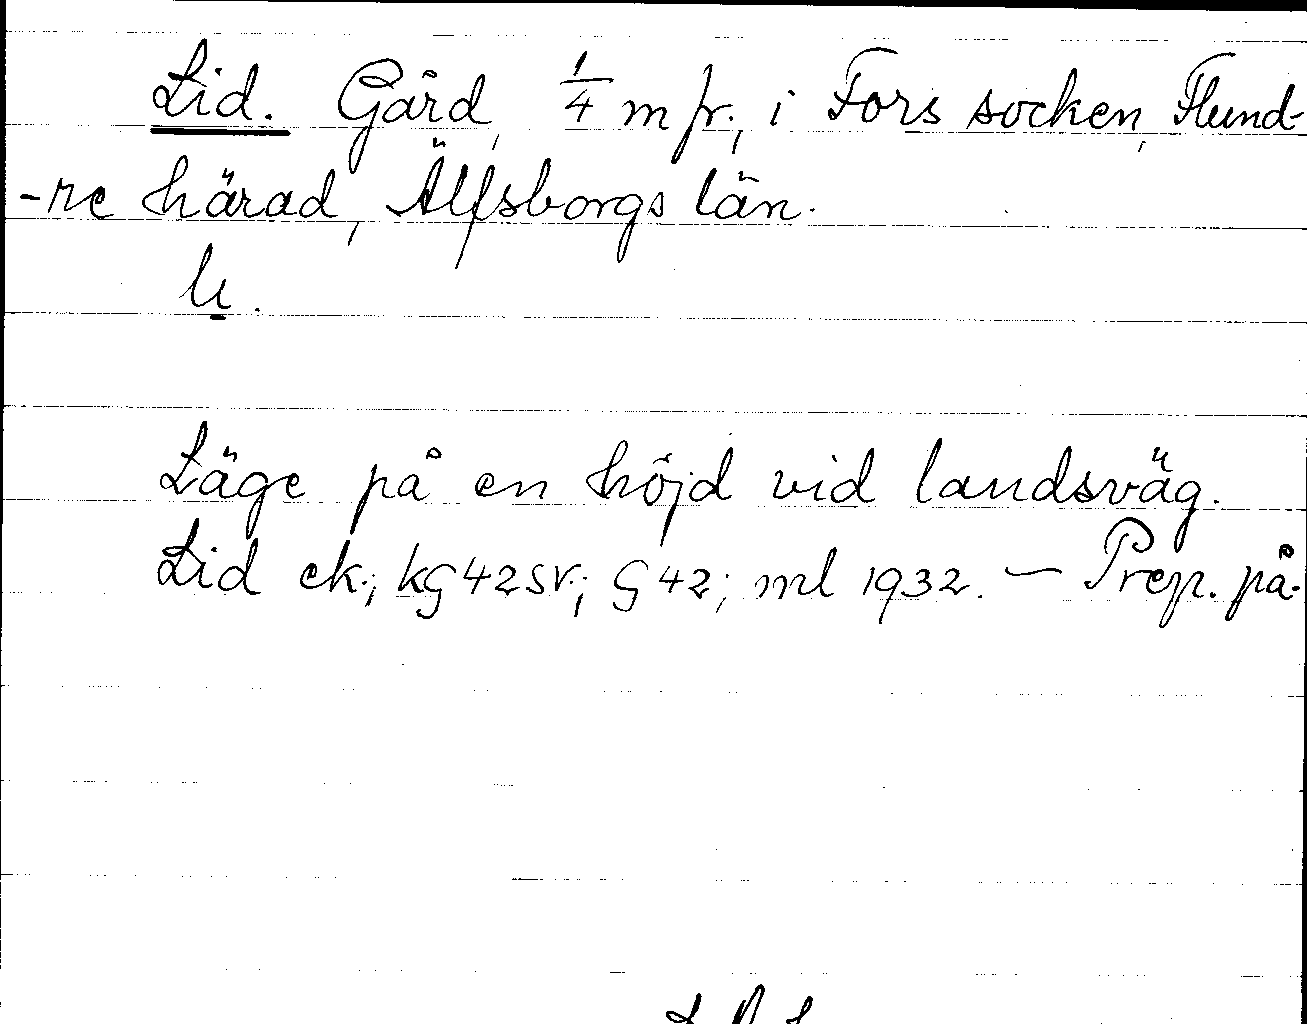 Lid. Gård, 1/4 m fr., i Fors socken, Flund-
-re härad, Älfsborgs län.
Läge på en höjd vid landsväg.
Lid ek.; kG42SV.; G42; ml 1932. — Prep. på.